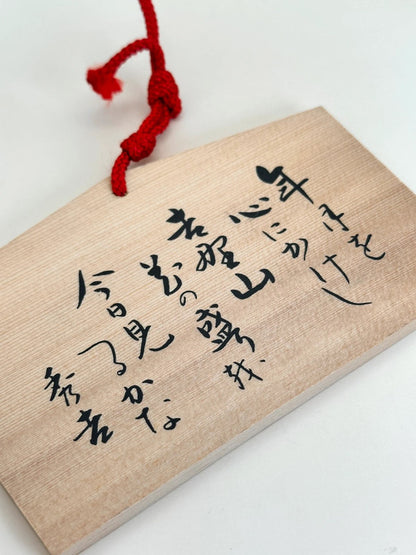 年月を
心にかけし
吉野山
花の盛越
今日見
つるかな
秀吉